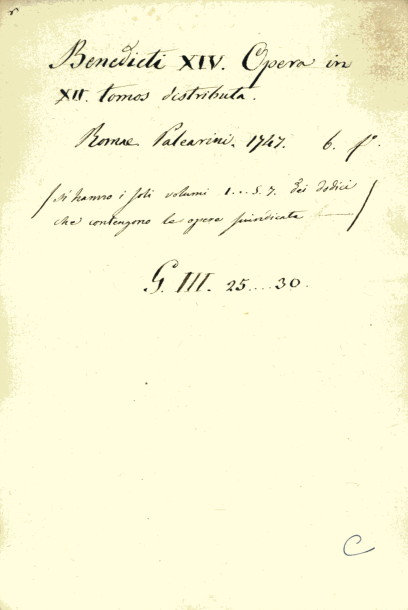 Benedicti XIV. Opera in
XII. tomos distributa.
Romae Palearini. 1747. 6. fº.
(si hanno i soli volumi 1...5.7. dei dodici
che contengono le opere
G. III. 25....30.
C